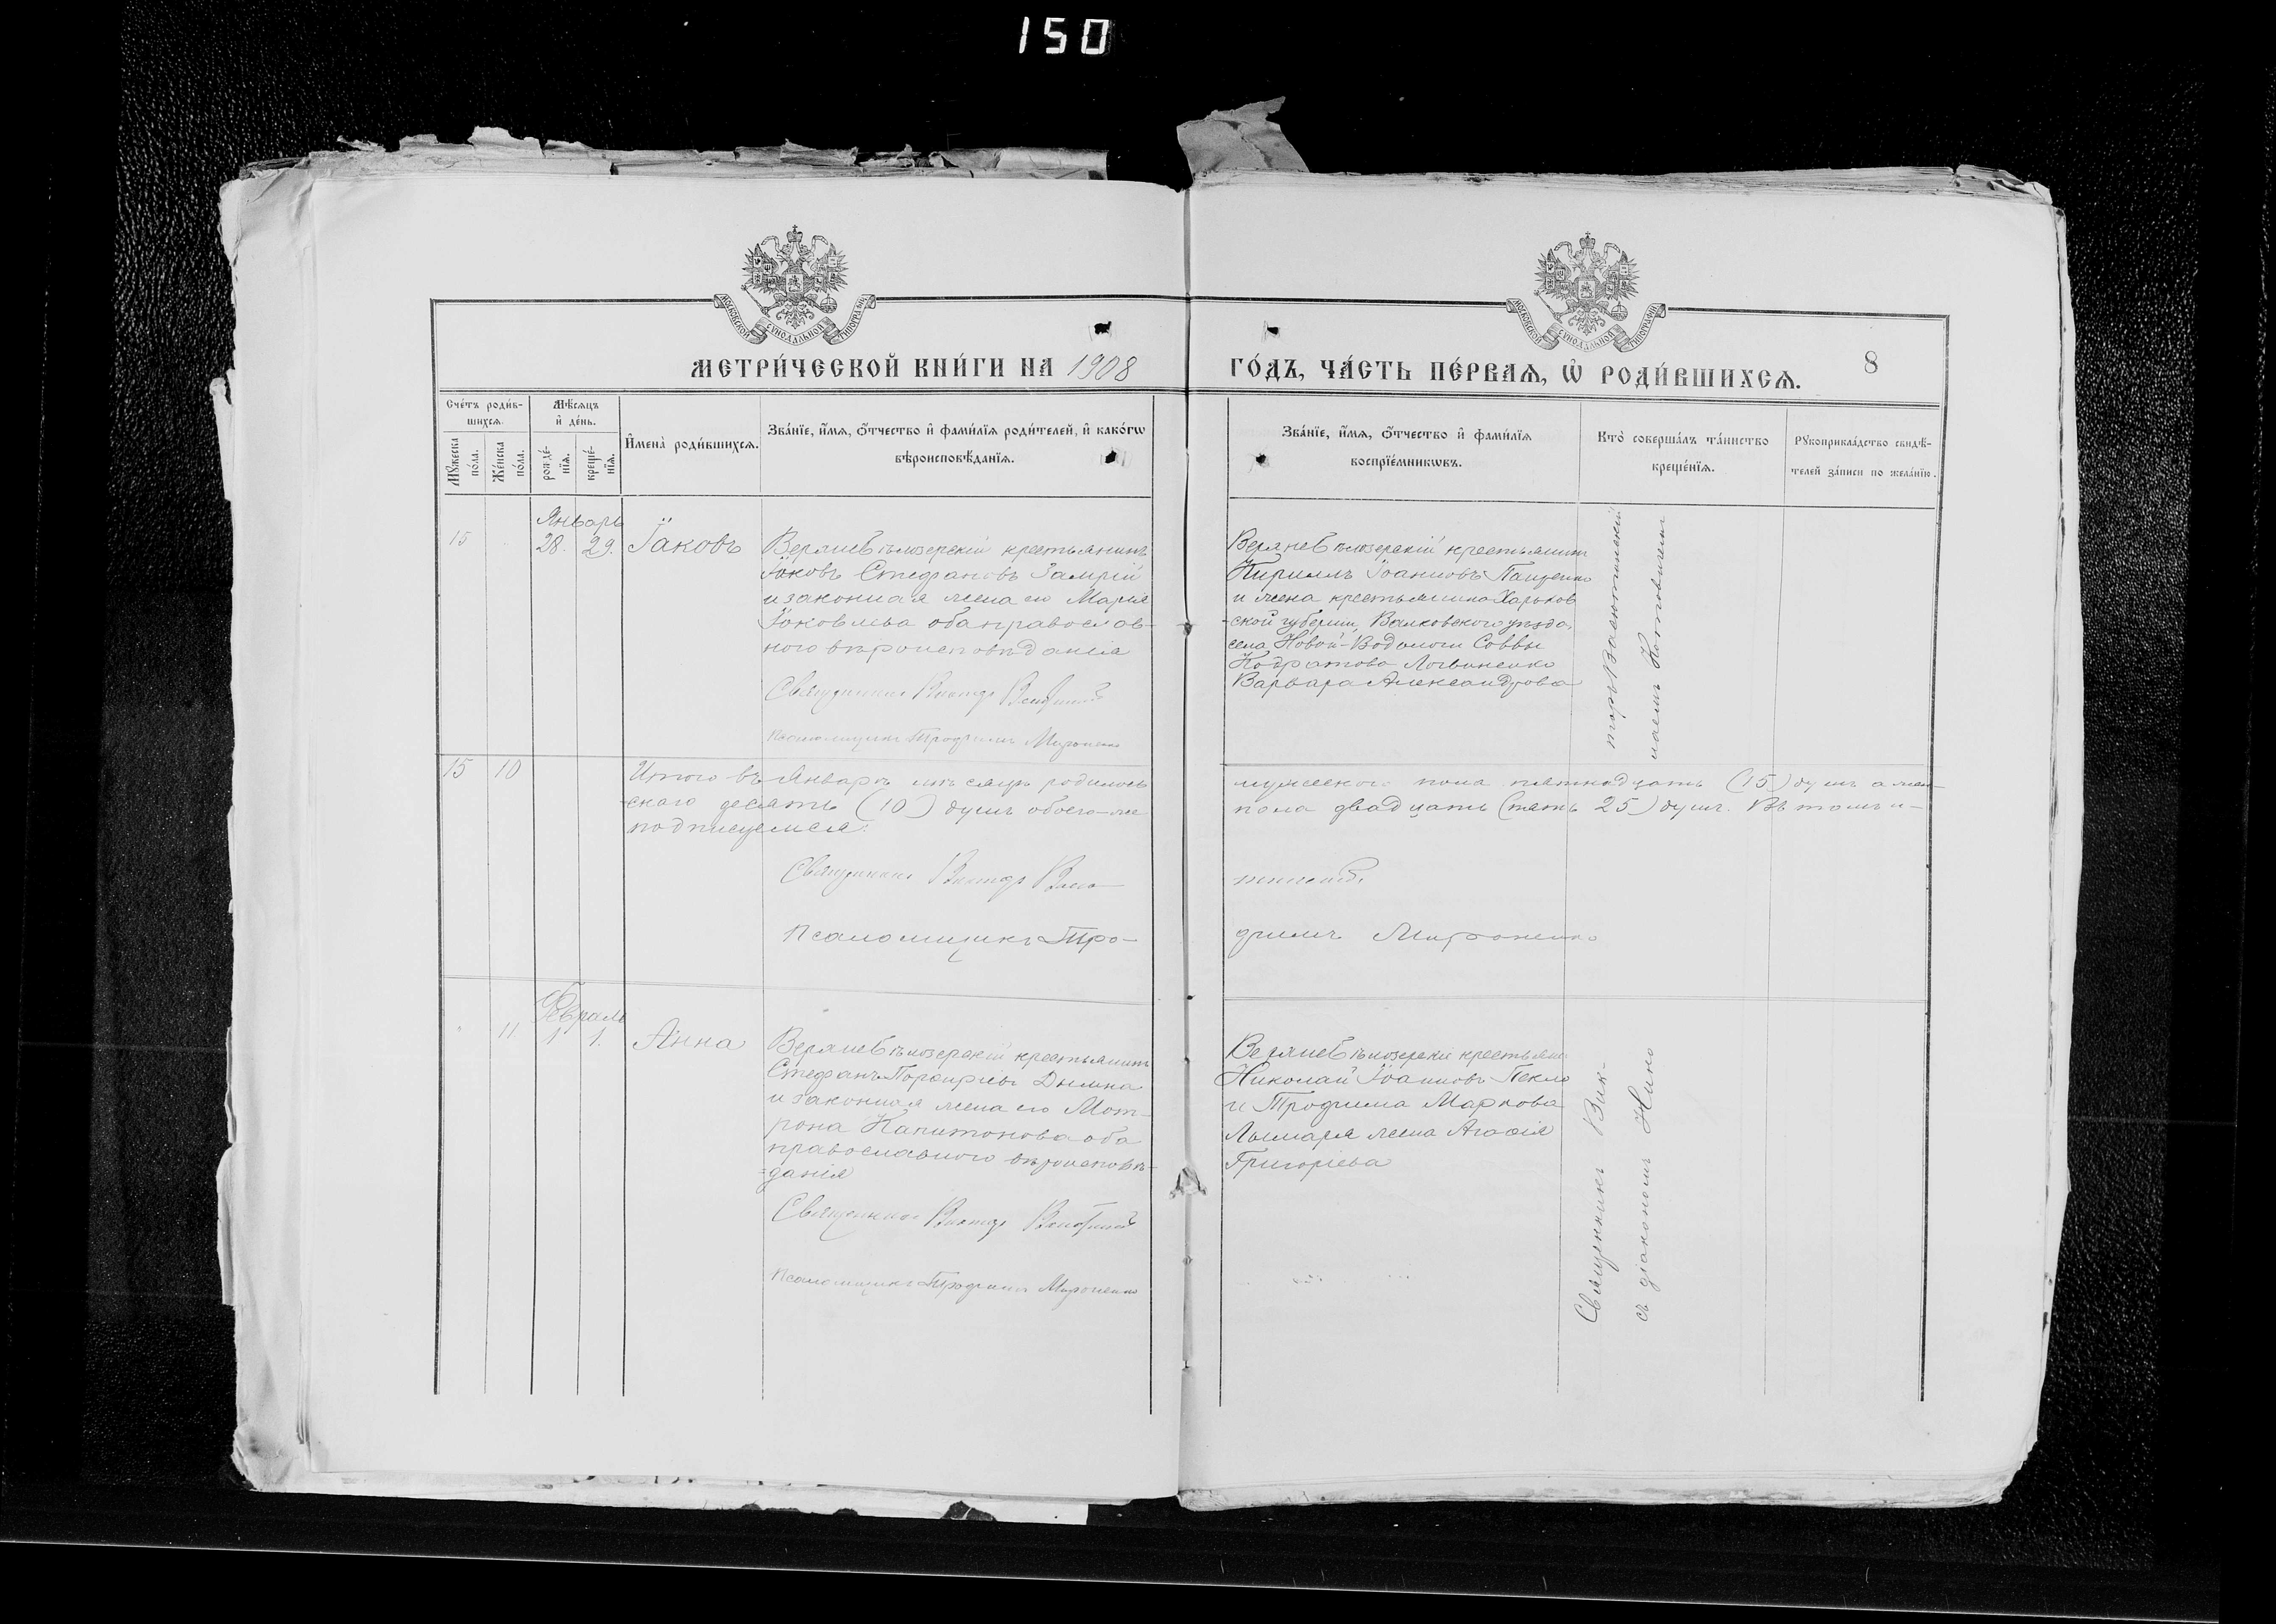 150
МОСКОВСКОЙ СѴНОДАЛЬНОЙ ТИПОГРАФІИ
МОСКОВСКОЙ СѴНОДАЛЬНОЙ ТИПОГРАФІИ
МЕТРИ́ЧЕСКОЙ КНИ́ГИ НА 1908
ГО́ДЪ, ЧА́СТЬ ПЕ́РВАѦ, Ѡ҆ РОДИ́ВШИХСѦ.
8
Сче́тъ роди́в-
шихсѧ.
Мѣ́сѧцъ
и҆ де́нь.
Мꙋ́жеска
по́ла.
Же́нска
по́ла.
рожде́-
нїѧ.
креще́-
нїѧ.
И҆мена̀ роди́вшихсѧ.
Зва́нїе, и҆́мѧ, ѻ҆́тчество и҆ фами́лїѧ роди́телей, и҆ како́гѡ
вѣроисповѣ́данїѧ.
Зва́нїе, и҆́мѧ, ѻ҆́тчество и҆ фами́лїѧ
воспрїе́мникѡвъ.
Кто̀ соверша́лъ та́инство
креще́нїѧ.
Рꙋкоприкла́дство свидѣ́-
телей за́писи по жела́нїю.
Январь
15 28. 29. Іаковъ
Верхнебѣлозерскій крестьянинъ
Іаковъ Стефановъ
и законная жена его Марія
Іаковлева оба православ-
наго вѣроисповѣданія
Священникъ Викторъ
Псаломщикъ Трофимъ Мироненко
Верхнебѣлозерскій крестьянинъ
Кириллъ Іоанновъ Пащенко
и жена крестьянина Харьков
-ской губерніи, Валковского уѣзда,
села Новой-Водолаги Саввы
Кодратова Логвиненко
Варвара Александрова
15 10
Итого въ Январѣ мѣсяцѣ родилось
мужескаго пола пятнадцать (15) душъ а жен-
скаго десять (10) душъ обоего-же
пола двадцать (пять 25) душъ. Въ томъ и-
подписуемся:
Священникъ Викторъ
Псаломщикъ Тро-
фимъ Мироненко
Февраль
11 1 1. Анна
Верхнебѣлозерскій крестьянинъ
Стефанъ Порфиріевъ
и законная жена его Мот-
рона Капитонова оба
православнаго вѣроисповѣ-
-данія
Священникъ Викторъ
Псаломщикъ Трофимъ Мироненко
Верхнебѣлозерскій
Николай Іоанновъ Пекло
и Трофима Маркова
жена Агафія
Григоріева
Священникъ Вик-
съ діакономъ